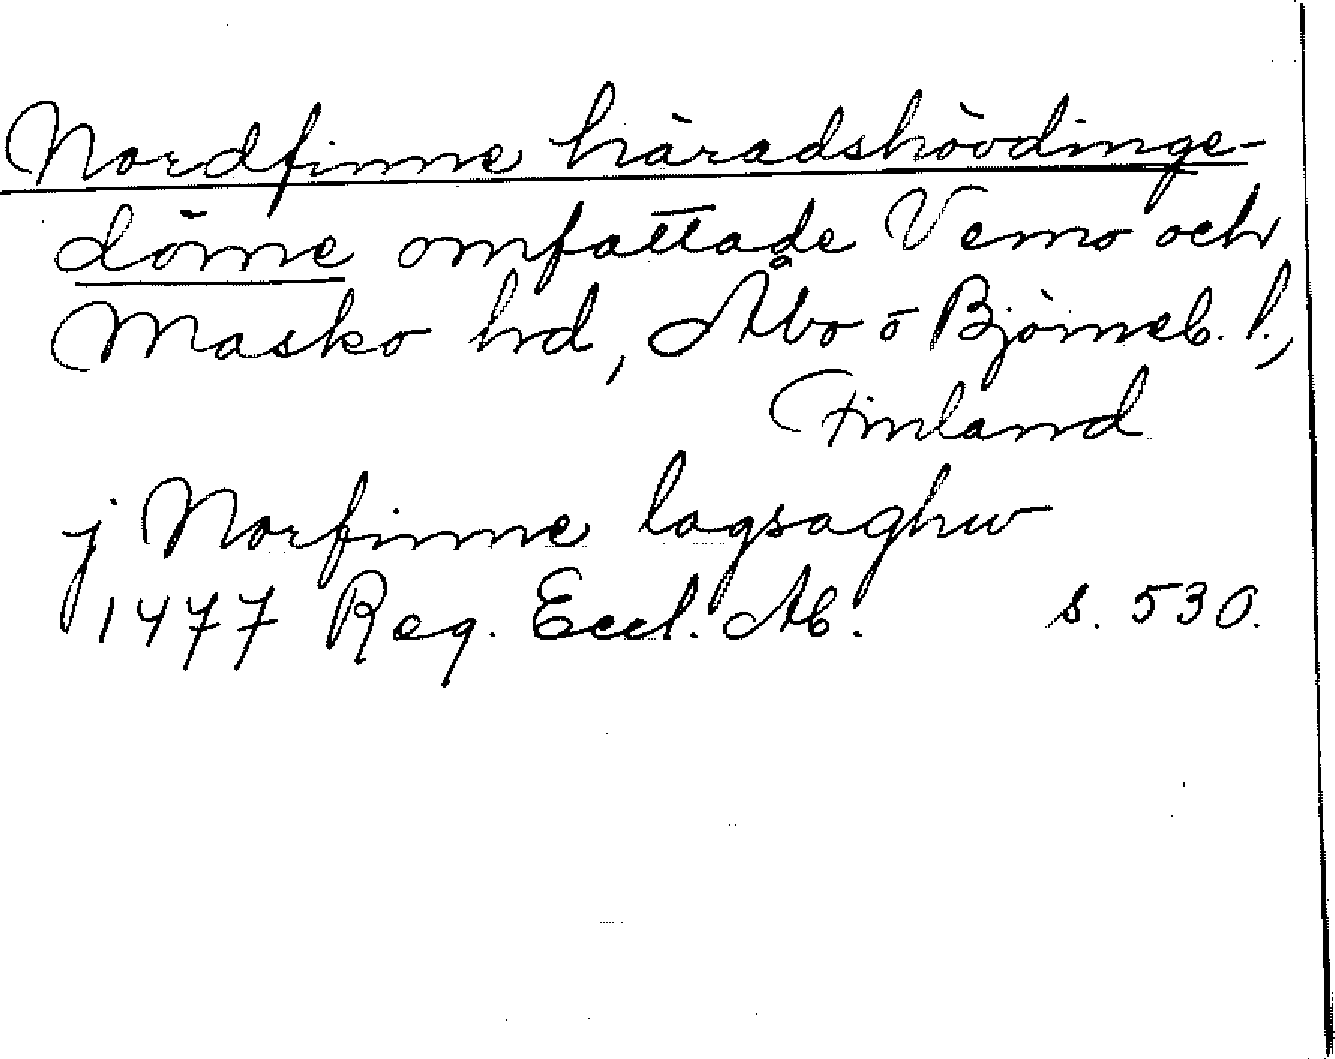 Nordfinne häradshövdinge-
döme omfattade Vemo och
Masko hd, Åbo o Björneb. l.,
Finland
j Norfinne lagsaghw
1477 Reg. Eccl. Ab. s. 530.